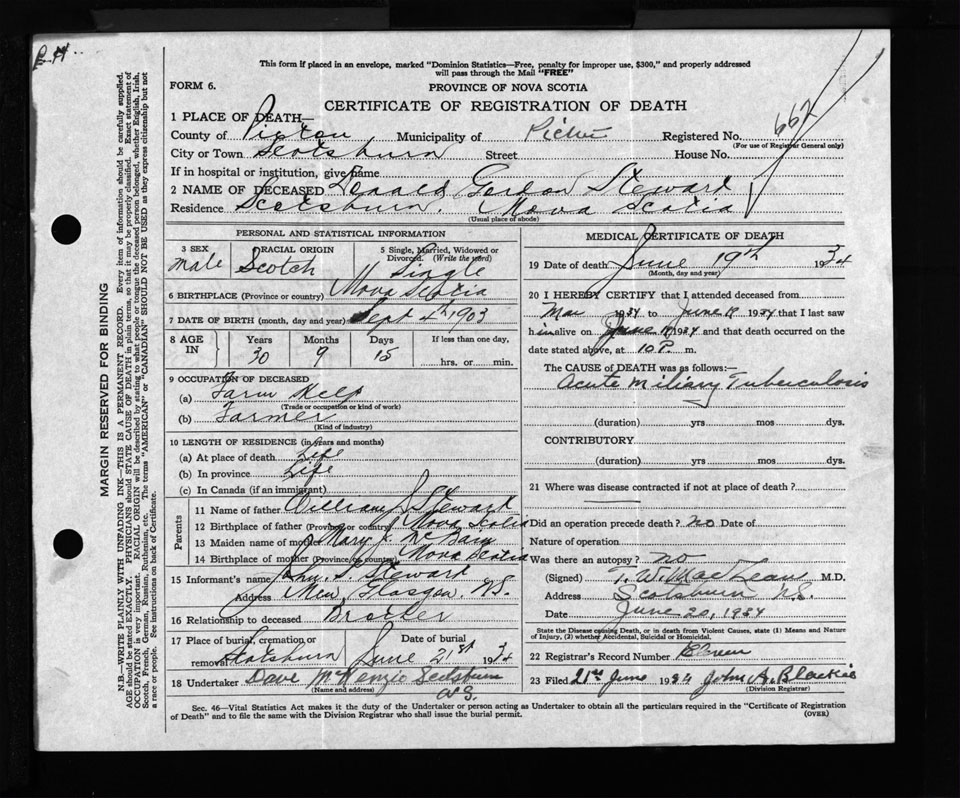 This form if placed in an envelope, marked "Dominion Statistics—Free, penalty for improper use, $300," and properly addressed
will pass through the Mail "FREE"
FORM 6.
PROVINCE OF NOVA SCOTIA
CERTIFICATE OF REGISTRATION OF DEATH
1 PLACE OF DEATH—
County of Pictou Municipality of Pictou Registered No. 662
(For use of Registrar General only)
City or Town Scotsburn Street House No.
If in hospital or institution, give name
2 NAME OF DECEASED Donald Gordon Stewart
Residence Scotsburn, Nova Scotia
(Usual place of abode)
PERSONAL AND STATISTICAL INFORMATION
3 SEX RACIAL ORIGIN 5 Single, Married, Widowed or Divorced. (Write the word)
Male Scotch Single
6 BIRTHPLACE (Province or country) Nova Scotia
7 DATE OF BIRTH (month, day and year) Sept 4th 1903
8 AGE IN Years Months Days If less than one day,
30 9 15 hrs. or min.
9 OCCUPATION OF DECEASED
(a) Farm Help
(Trade or occupation or kind of work)
(b) Farmer
(Kind of industry)
10 LENGTH OF RESIDENCE (in years and months)
(a) At place of death Life
(b) In province Life
(c) In Canada (if an immigrant)
Parents
11 Name of father William Stewart
12 Birthplace of father (Province or country) Nova Scotia
13 Maiden name of mother Mary J. McBain
14 Birthplace of mother (Province or country) Nova Scotia
15 Informant's name John S. Stewart
Address New Glasgow, N.S.
16 Relationship to deceased Brother
17 Place of burial, cremation or removal Date of burial
Scotsburn June 21st 1934
18 Undertaker Dave McKenzie Scotsburn
(Name and address) N.S.
MEDICAL CERTIFICATE OF DEATH
19 Date of death June 19th 1934
(Month, day and year)
20 I HEREBY CERTIFY that I attended deceased from
Mar 1934 to June 19 1934 that I last saw
him alive on June 19 1934 and that death occurred on
date stated above, at 10 P. m.
The CAUSE OF DEATH was as follows:—
Acute Miliary Tuberculosis
(duration) yrs mos dys.
CONTRIBUTORY
(duration) yrs mos dys.
21 Where was disease contracted if not at place of death?
Did an operation precede death? no Date of
Nature of operation
Was there an autopsy? no
(Signed) T. W. MacLean M.D.
Address Scotsburn N.S.
Date June 20, 1934
State the Disease causing Death, or in death from Violent Causes, state (1) Means and Nature
of Injury, (2) whether Accidental, Suicidal or Homicidal.
22 Registrar's Record Number Eleven
23 Filed 21st June 1934 John A. Blackie
(Division Registrar)
Sec. 46—Vital Statistics Act makes it the duty of the Undertaker or person acting as Undertaker to obtain all the particulars required in the "Certificate of Registration
of Death" and to file the same with the Division Registrar who shall issue the burial permit.
(OVER)
MARGIN RESERVED FOR BINDING
N.B.—WRITE PLAINLY WITH UNFADING INK—THIS IS A PERMANENT RECORD. Every item of information should be carefully supplied.
AGE should be stated EXACTLY. PHYSICIANS should STATE CAUSE OF DEATH in plain terms, so that it may be properly classified. Exact statement of
OCCUPATION is very important. RACIAL ORIGIN will be described by stating to what people or tongue the deceased person belonged, whether English, Irish,
Scotch, French, German, Russian, Ruthenian, etc. The terms "AMERICAN" or "CANADIAN" SHOULD NOT BE USED as they express citizenship but not
a race or people. See instructions on back of Certificate.